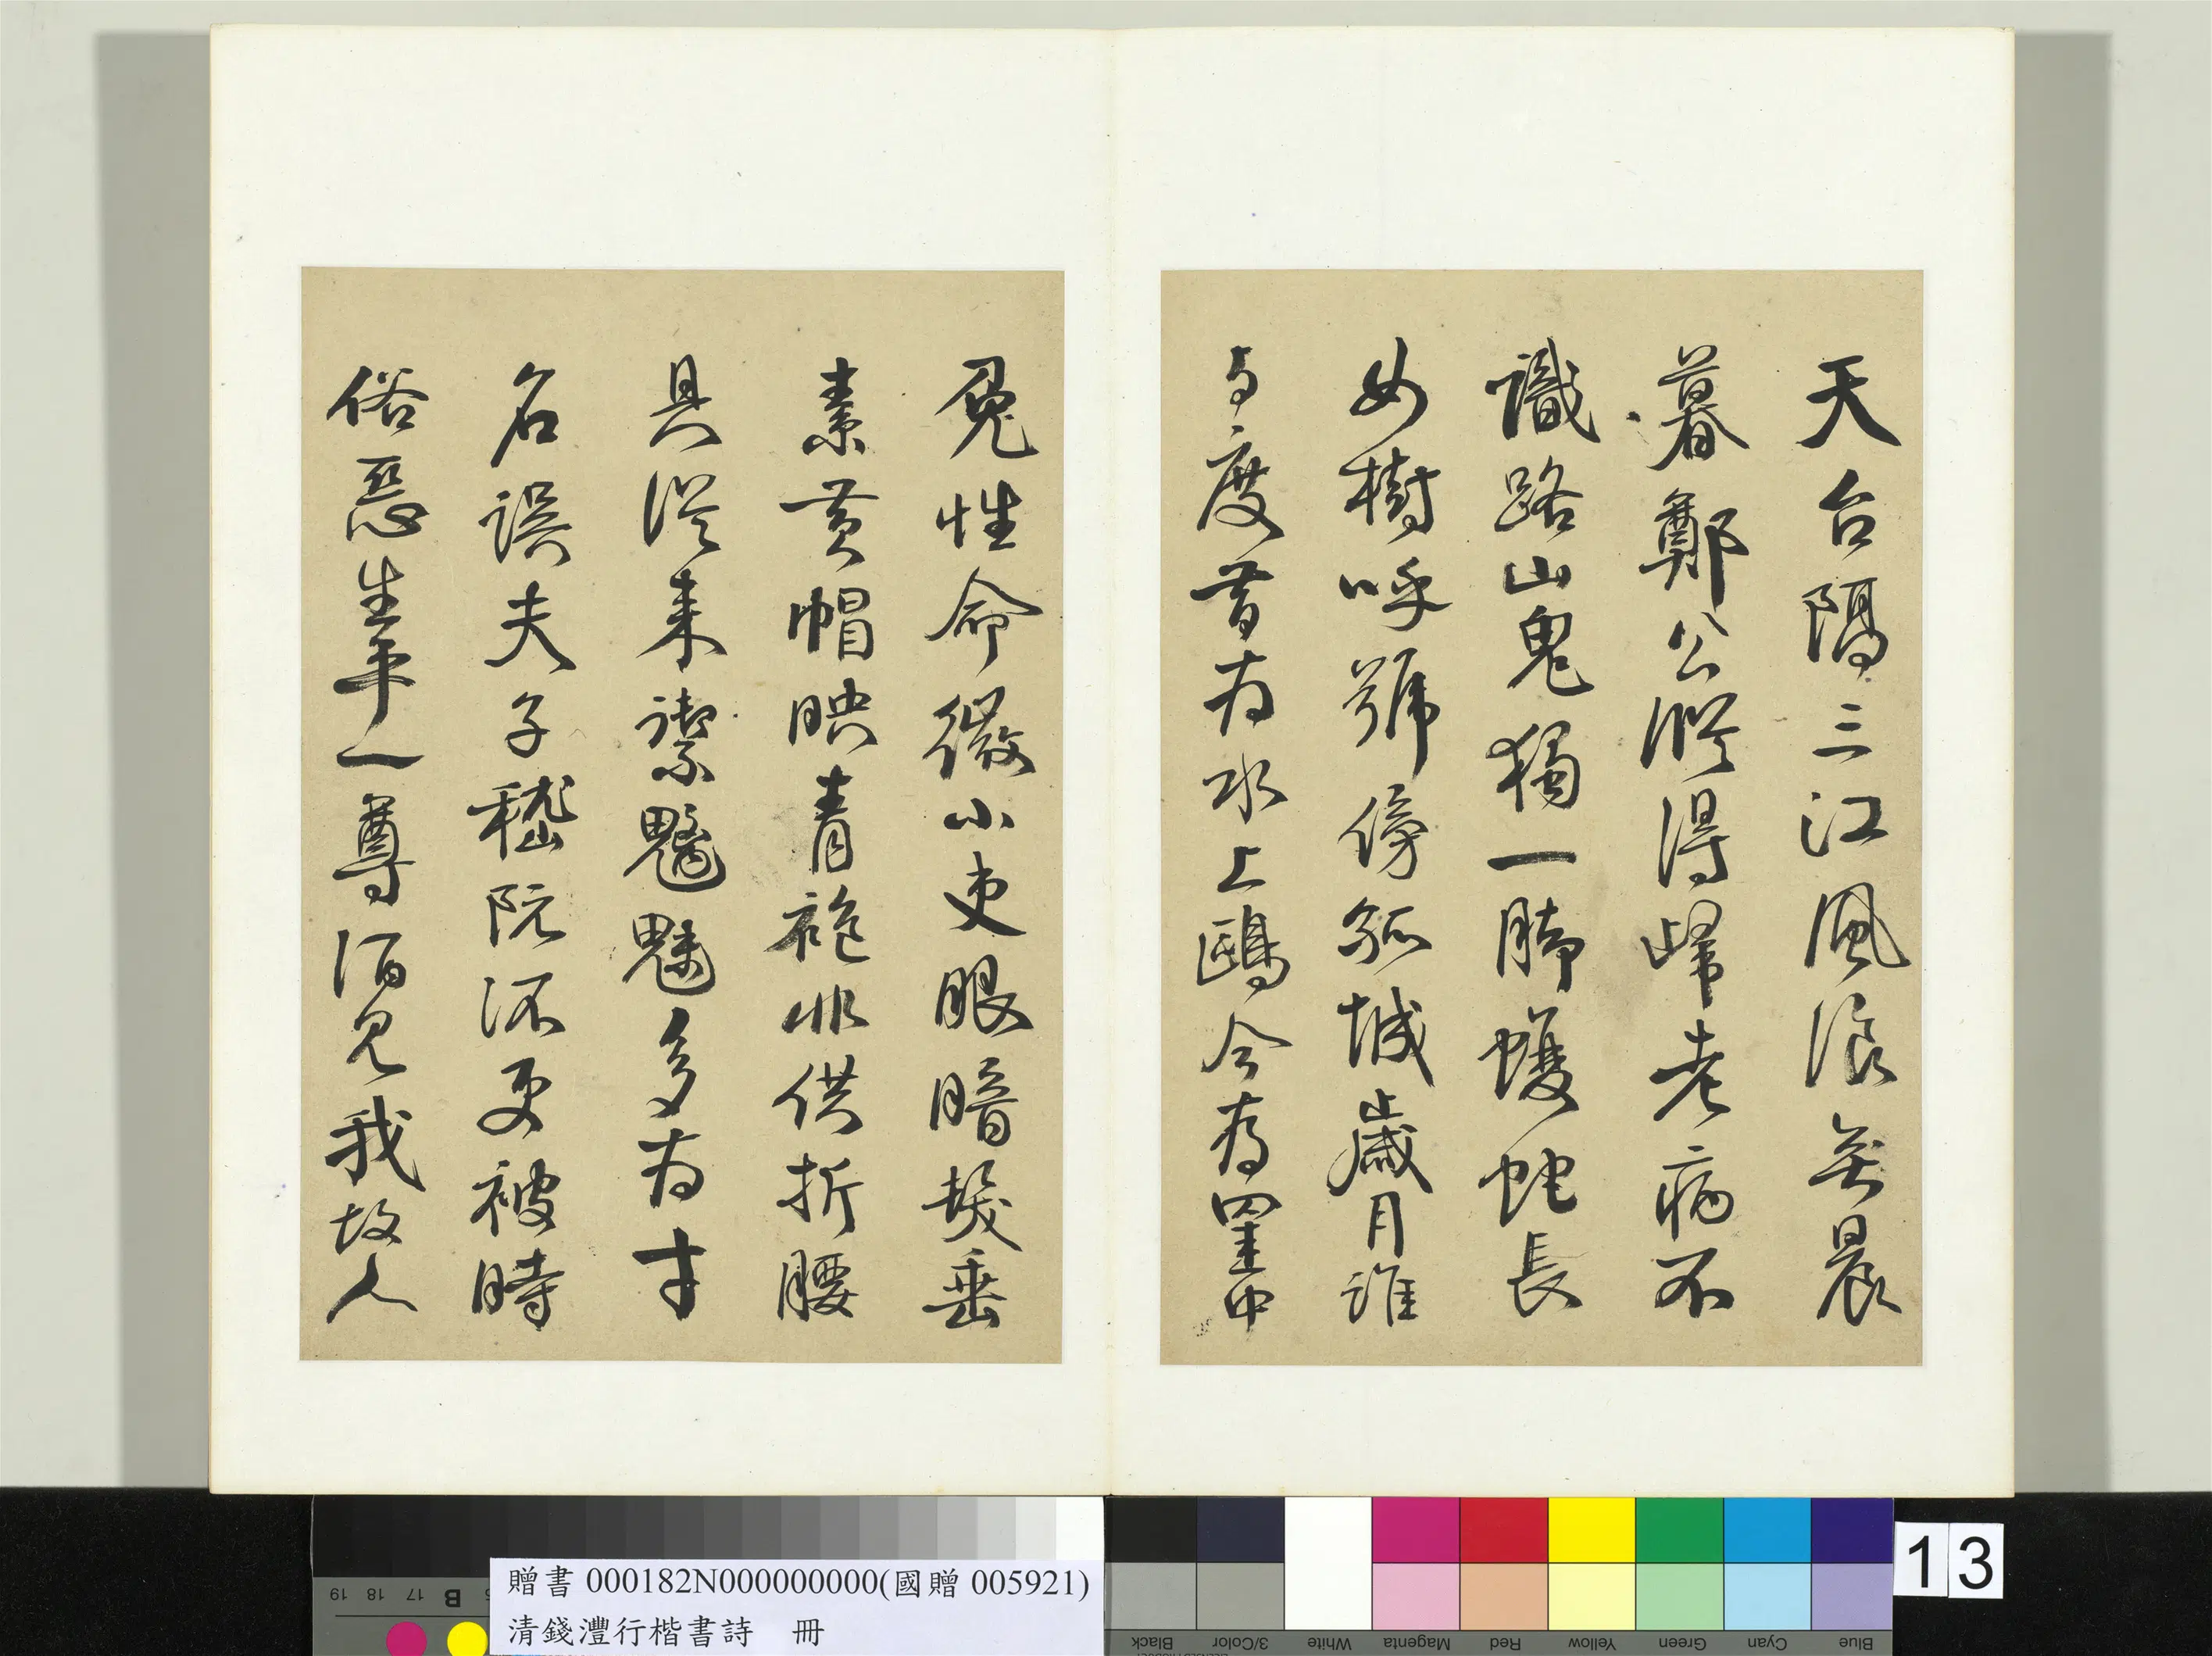 天台隔三江風浪無晨
暮鄭公縱得歸老病不
識路山鬼獨一腳蝮蛇長
如樹呼號傍孤城歲月誰
与度昔為水上鷗今為罝中
兔性命微小吏眼暗髮垂
素黃帽映青袍非供折腰
具從來禦魑魅多為才
名誤夫子嵇阮流更被時
俗惡生平一尊酒見我故人
贈書 000182N000000000(國贈 005921)
清錢灃行楷書詩 冊
13
19 18 17 B
Blue Cyan Green Yellow Red Magenta White 3/Color Black